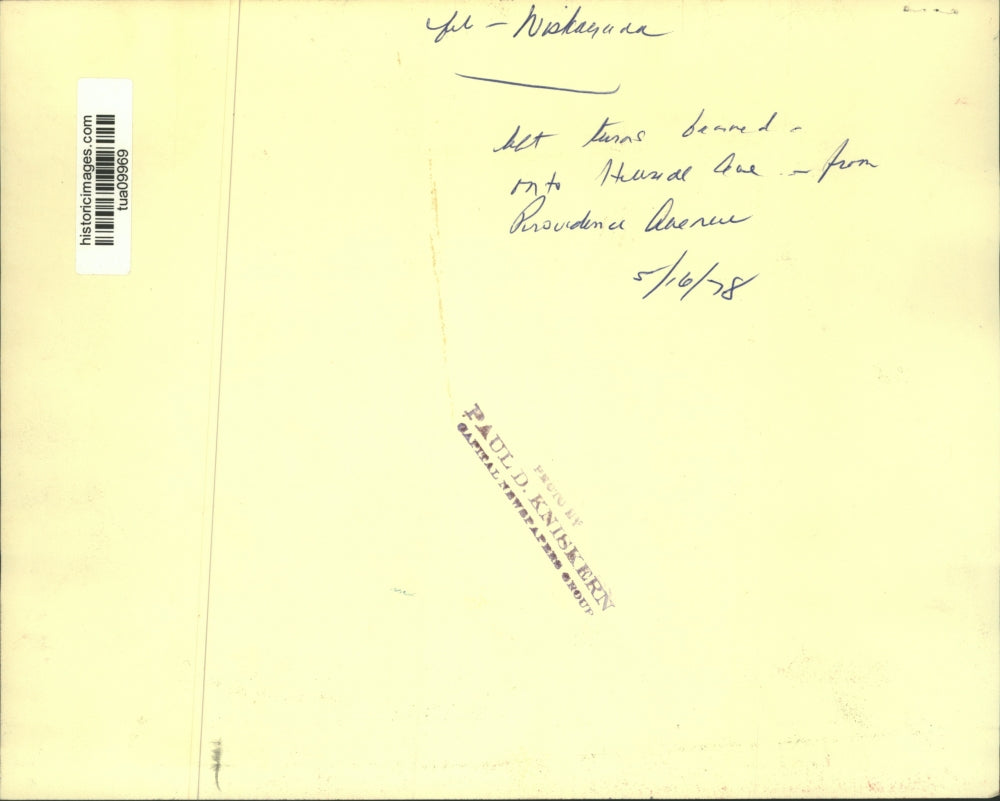 file - Niskayuna
left turns banned -
onto Hillside Ave - from
Providence Avenue
5/16/78
historicimages.com
tua09969
PHOTO BY
PAUL D. KNISKERN
CAPITAL NEWSPAPERS GROUP